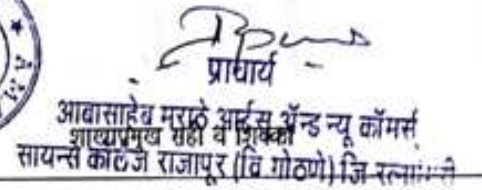 प्राचार्य
आबासाहेब मराठे आर्ट्स ॲन्ड न्यू कॉमर्स
शाखाप्रमुख सही व शिक्का
सायन्स कॉलेज राजापूर (वि गोठणे) जि रत्नागिरी